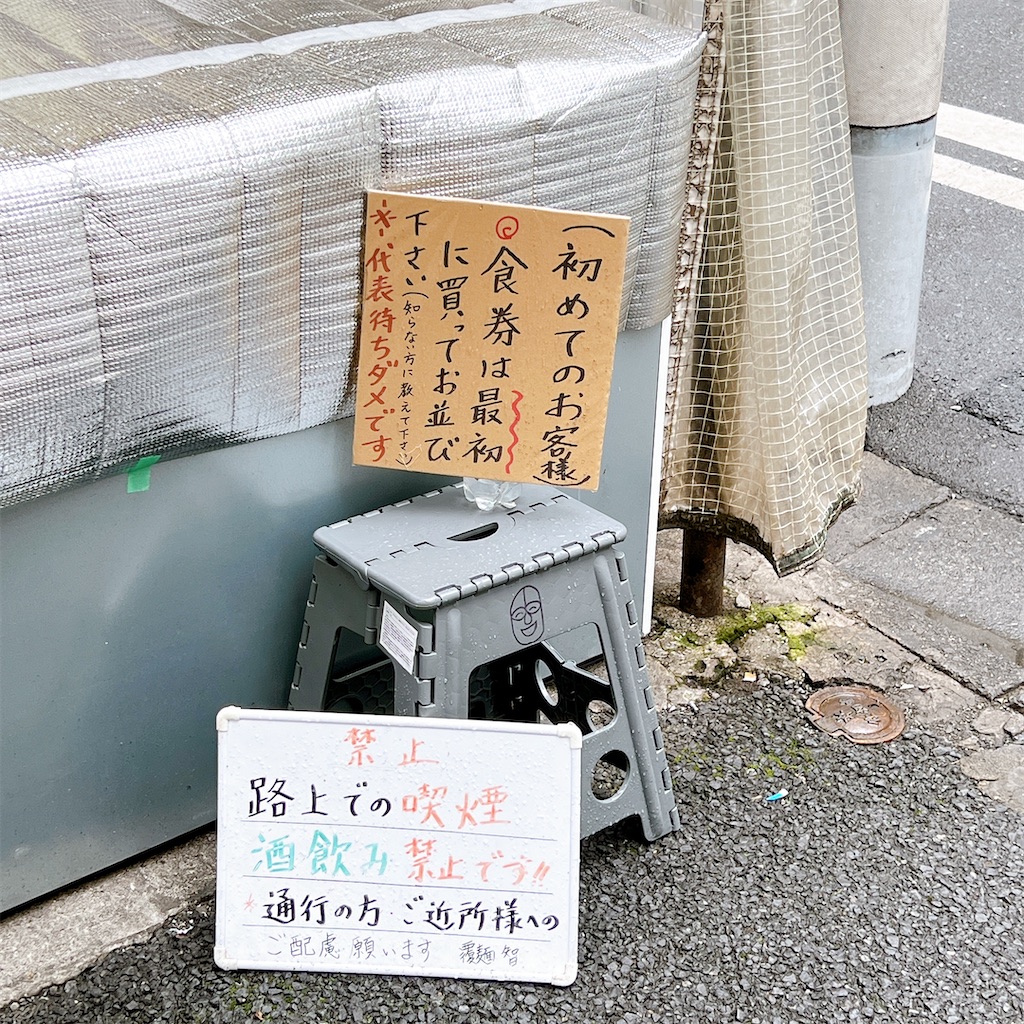 (初めてのお客様)
食券は最初
に買ってお並び
下さい(知らない方に教えて下さい)
※代表待ちダメです
禁止
路上での喫煙
酒飲み禁止です!!
*通行の方 ご近所様への
ご配慮願います 覆麺 智